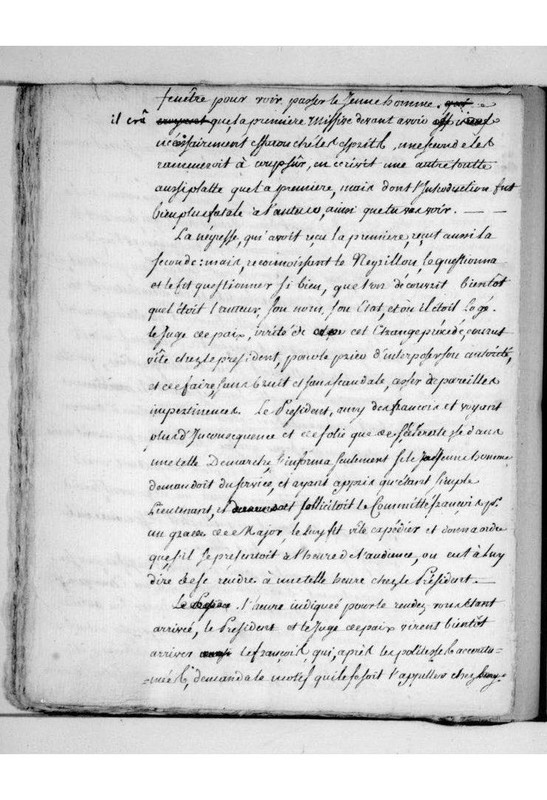 fenêtre pour voir passer le Jeune homme.
il crû que la première missive devant avoir
nécessairement effarouché les esprits, une seconde les
rameneroit à coup sûr, en écrivit une autre toutte
aussi platte que la première, mais dont l'Introduction fut
bien plus fatale à l'auteur, ainsi que tu vas voir. — —
La négresse, qui avoit reçu la première, reçut aussi la
seconde : mais, reconnoissant le Négrillon, le questionna
et le fit questionner si bien, que l'on découvrit bientôt
quel étoit l'auteur, son nom, son Etat, et où il étoit logé.
le Juge de paix, irrité de cet Etrange procédé, courut
vîte chez le président, pour le prier d'interposer son autorité,
et de faire, sans bruit et sans scandale, cesser de pareilles
impertinences. Le Président, amy des françois et voyant
plus d'Inconsequence et de folie que de scélératesse dans
une telle Demarche, s'informa seulement si le Jeune homme
demandoit du service, et ayant appris qu'étant simple
Lieutenant, il sollicitoit le Committé français pr.
un grade de Major, le luy fit vîte expédier et donna ordre
que s'il se présentoit à l'heure de l'audience, on eut à luy
dire de se rendre à une telle heure chez le Président. —
l'heure indiquée pour le rendez vous étant
arrivée, le Président et le Juge de paix virent bientôt
arriver le françois, qui, après les politesses accoutu=
=mées, demanda le motif qui le fesoit l'appeller chez luy.